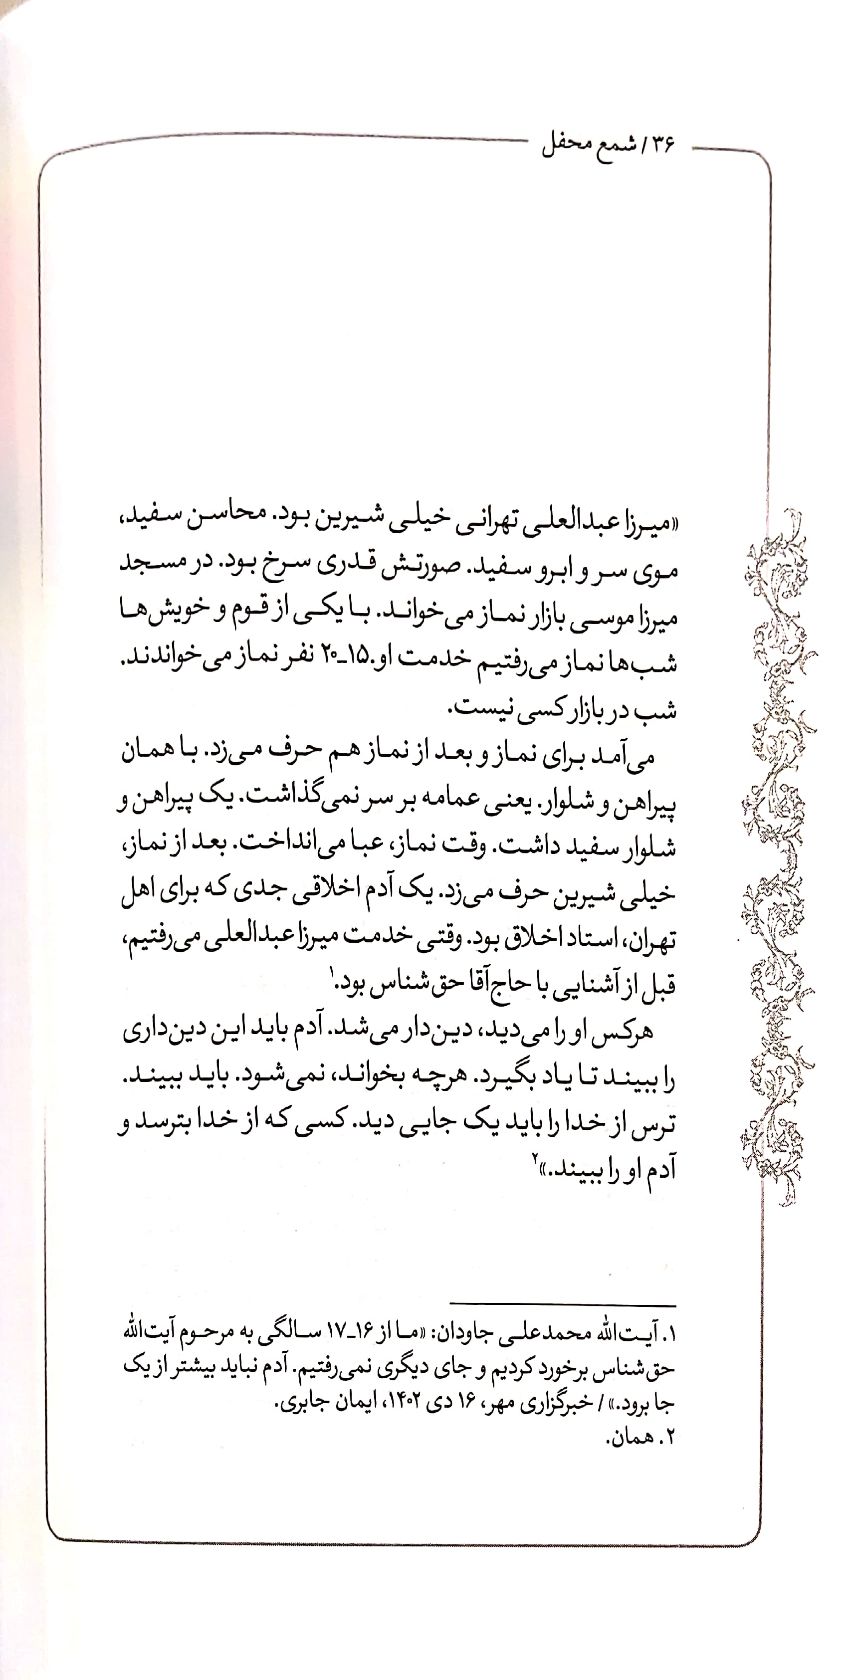 ۳۶ / شمع محفل
«میرزا عبدالعلی تهرانی خیلی شیرین بود. محاسن سفید،
موی سر و ابرو سفید. صورتش قدری سرخ بود. در مسجد
میرزا موسی بازار نماز می‌خواند. با یکی از قوم و خویش‌ها
شب‌ها نماز می‌رفتیم خدمت او. ۱۵ـ۲۰ نفر نماز می‌خواندند.
شب در بازار کسی نیست.
می‌آمد برای نماز و بعد از نماز هم حرف می‌زد. با همان
پیراهن و شلوار. یعنی عمامه بر سر نمی‌گذاشت. یک پیراهن و
شلوار سفید داشت. وقت نماز، عبا می‌انداخت. بعد از نماز،
خیلی شیرین حرف می‌زد. یک آدم اخلاقی جدی که برای اهل
تهران، استاد اخلاق بود. وقتی خدمت میرزا عبدالعلی می‌رفتیم،
قبل از آشنایی با حاج‌آقا حق‌شناس بود.۱
هرکس او را می‌دید، دین‌دار می‌شد. آدم باید این دین‌داری
را ببیند تا یاد بگیرد. هرچه بخواند، نمی‌شود. باید ببیند.
ترس از خدا را باید یک جایی دید. کسی که از خدا بترسد و
آدم او را ببیند.»۲
۱. آیت‌الله محمدعلی جاودان: «ما از ۱۶ـ۱۷ سالگی به مرحوم آیت‌الله
حق‌شناس برخورد کردیم و جای دیگری نمی‌رفتیم. آدم نباید بیشتر از یک
جا برود.» / خبرگزاری مهر، ۱۶ دی ۱۴۰۲، ایمان جابری.
۲. همان.